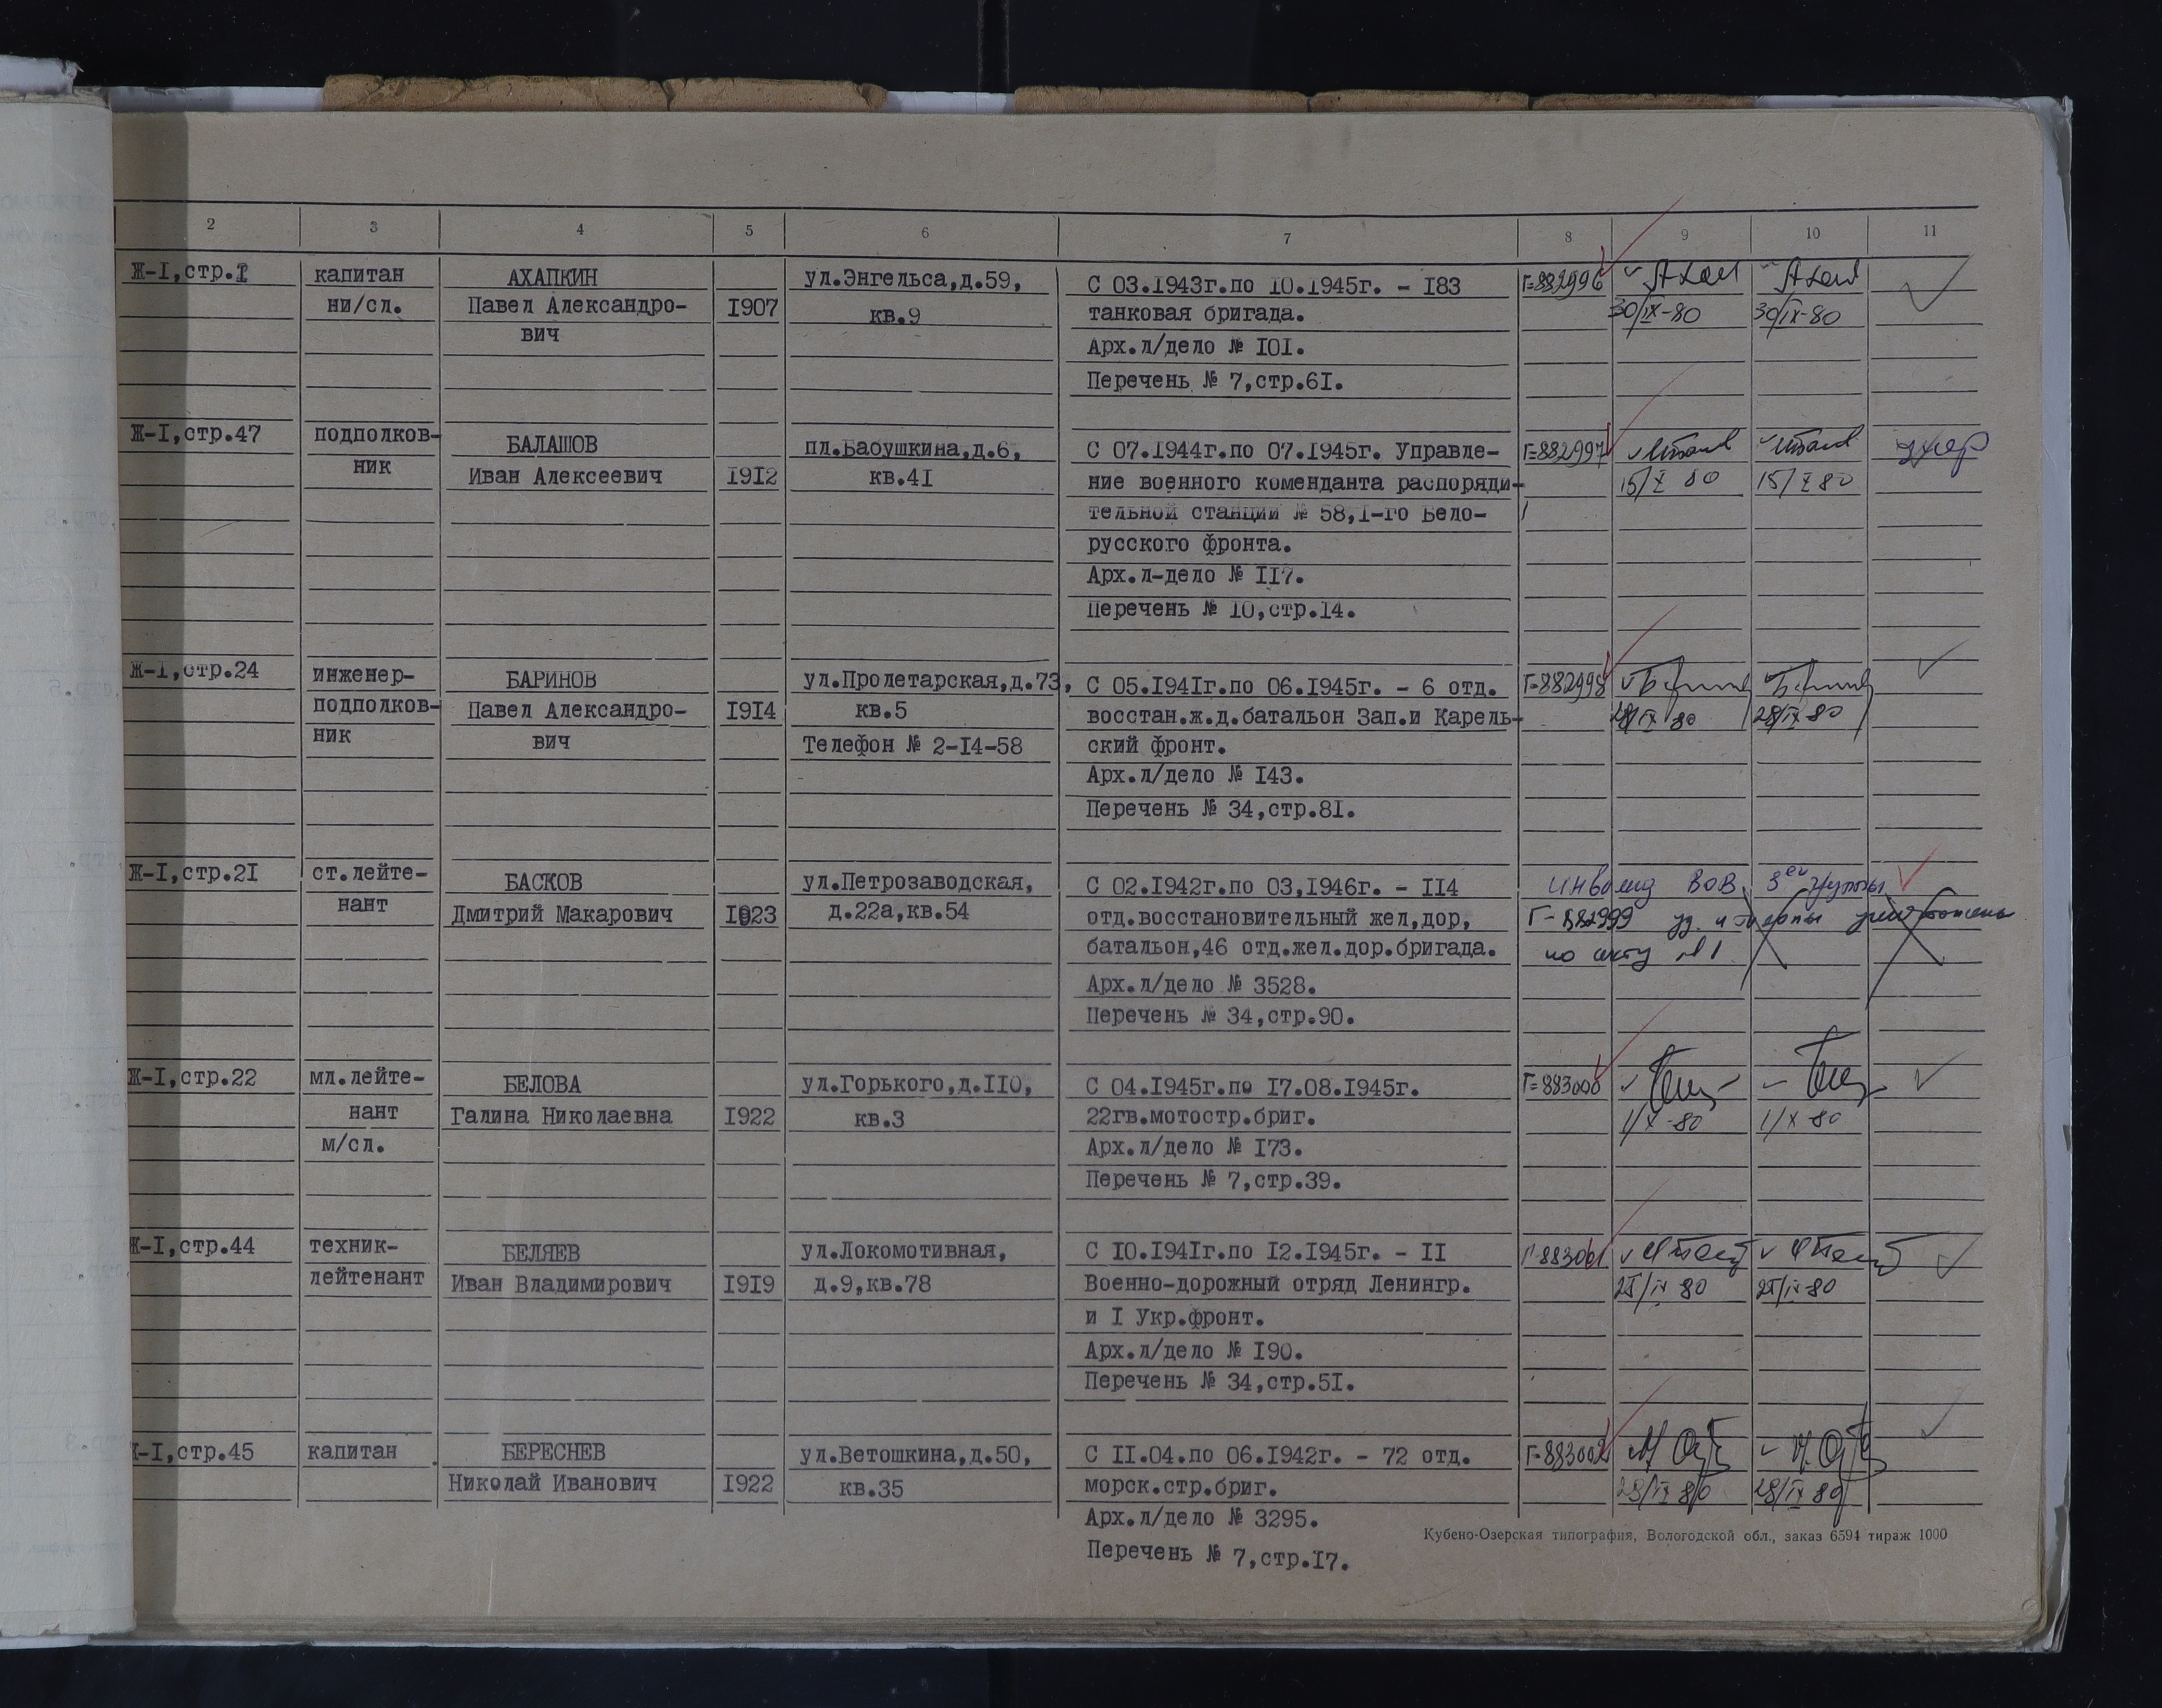 2 3 4 5 6 7 8 9 10 11
Ж-I,стр.I капитан АХАПКИН ул.Энгельса,д.59, С 03.I943г.по I0.I945г. - I83 Г-882996
ни/сл. Павел Александро- I907 кв.9 танковая бригада. 30/IX-80 30/IX-80
вич Арх.л/дело № I0I.
Перечень № 7,стр.6I.
Ж-I,стр.47 подполков- БАЛАШОВ пл.Бабушкина,д.6, С 07.I944г.по 07.I945г. Управле- Г-882997 умер
ник Иван Алексеевич I9I2 кв.4I ние военного коменданта распоряди- 15/X 80 15/X 80
тельной станции № 58,I-го Бело-
русского фронта.
Арх.л-дело № II7.
Перечень № I0,стр.I4.
Ж-I,стр.24 инженер- БАРИНОВ ул.Пролетарская,д.73, С 05.I94Iг.по 06.I945г. - 6 отд. Г-882998
подполков- Павел Александро- I9I4 кв.5 восстан.ж.д.батальон Зап.и Карель- 28/IX 80 28/IX 80
ник вич Телефон № 2-I4-58 ский фронт.
Арх.л/дело № I43.
Перечень № 34,стр.8I.
Ж-I,стр.2I ст.лейте- БАСКОВ ул.Петрозаводская, С 02.I942г.по 03,I946г. - II4 инвалид ВОВ 3ей группы
нант Дмитрий Макарович I923 д.22а,кв.54 отд.восстановительный жел,дор, Г-882999 уд. и
батальон,46 отд.жел.дор.бригада. по акту №1
Арх.л/дело № 3528.
Перечень № 34,стр.90.
Ж-I,стр.22 мл.лейте- БЕЛОВА ул.Горького,д.II0, С 04.I945г.по I7.08.I945г. Г-883000
нант Галина Николаевна I922 кв.3 22гв.мотостр.бриг. 1/X-80 1/X 80
м/сл. Арх.л/дело № I73.
Перечень № 7,стр.39.
Ж-I,стр.44 техник- БЕЛЯЕВ ул.Локомотивная, С I0.I94Iг.по I2.I945г. - II Г-883001
лейтенант Иван Владимирович I9I9 д.9,кв.78 Военно-дорожный отряд Ленингр.
и I Укр.фронт.
Арх.л/дело № I90.
Перечень № 34,стр.5I.
Ж-I,стр.45 капитан БЕРЕСНЕВ ул.Ветошкина,д.50, С II.04.по 06.I942г. - 72 отд. Г-883002
Николай Иванович I922 кв.35 морск.стр.бриг. 28/IX 80 28/IX 80
Арх.л/дело № 3295.
Кубено-Озерская типография, Вологодской обл., заказ 6594 тираж 1000
Перечень № 7,стр.I7.